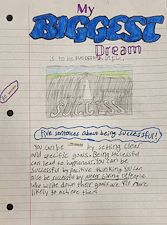 My
BIGGEST
Dream
is to be successful in life.
SUCCESS
Five sentences about being successful!
You can be by setting clear
and specific goals. Being successful
can lead to happiness. You can be
successful by positive thinking. You can
also be successful by never giving up. People
who write down their goals are far more
likely to achieve them.